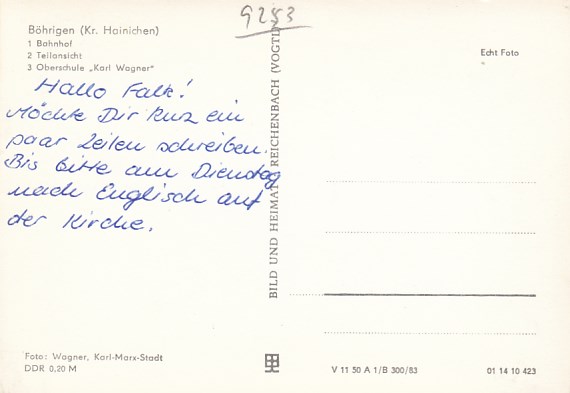 9253
Böhrigen (Kr. Hainichen)
1 Bahnhof
2 Teilansicht
3 Oberschule „Karl Wagner"
Echt Foto
Hallo Falk!
Möchte Dir kurz ein
paar Zeilen schreiben.
Bis bitte am Dienstag
nach Englisch auf
der Kirche.
BILD UND HEIMAT REICHENBACH (VOGTL
Foto: Wagner, Karl-Marx-Stadt
DDR 0,20 M
V 11 50 A 1/B 300/83
01 14 10 423